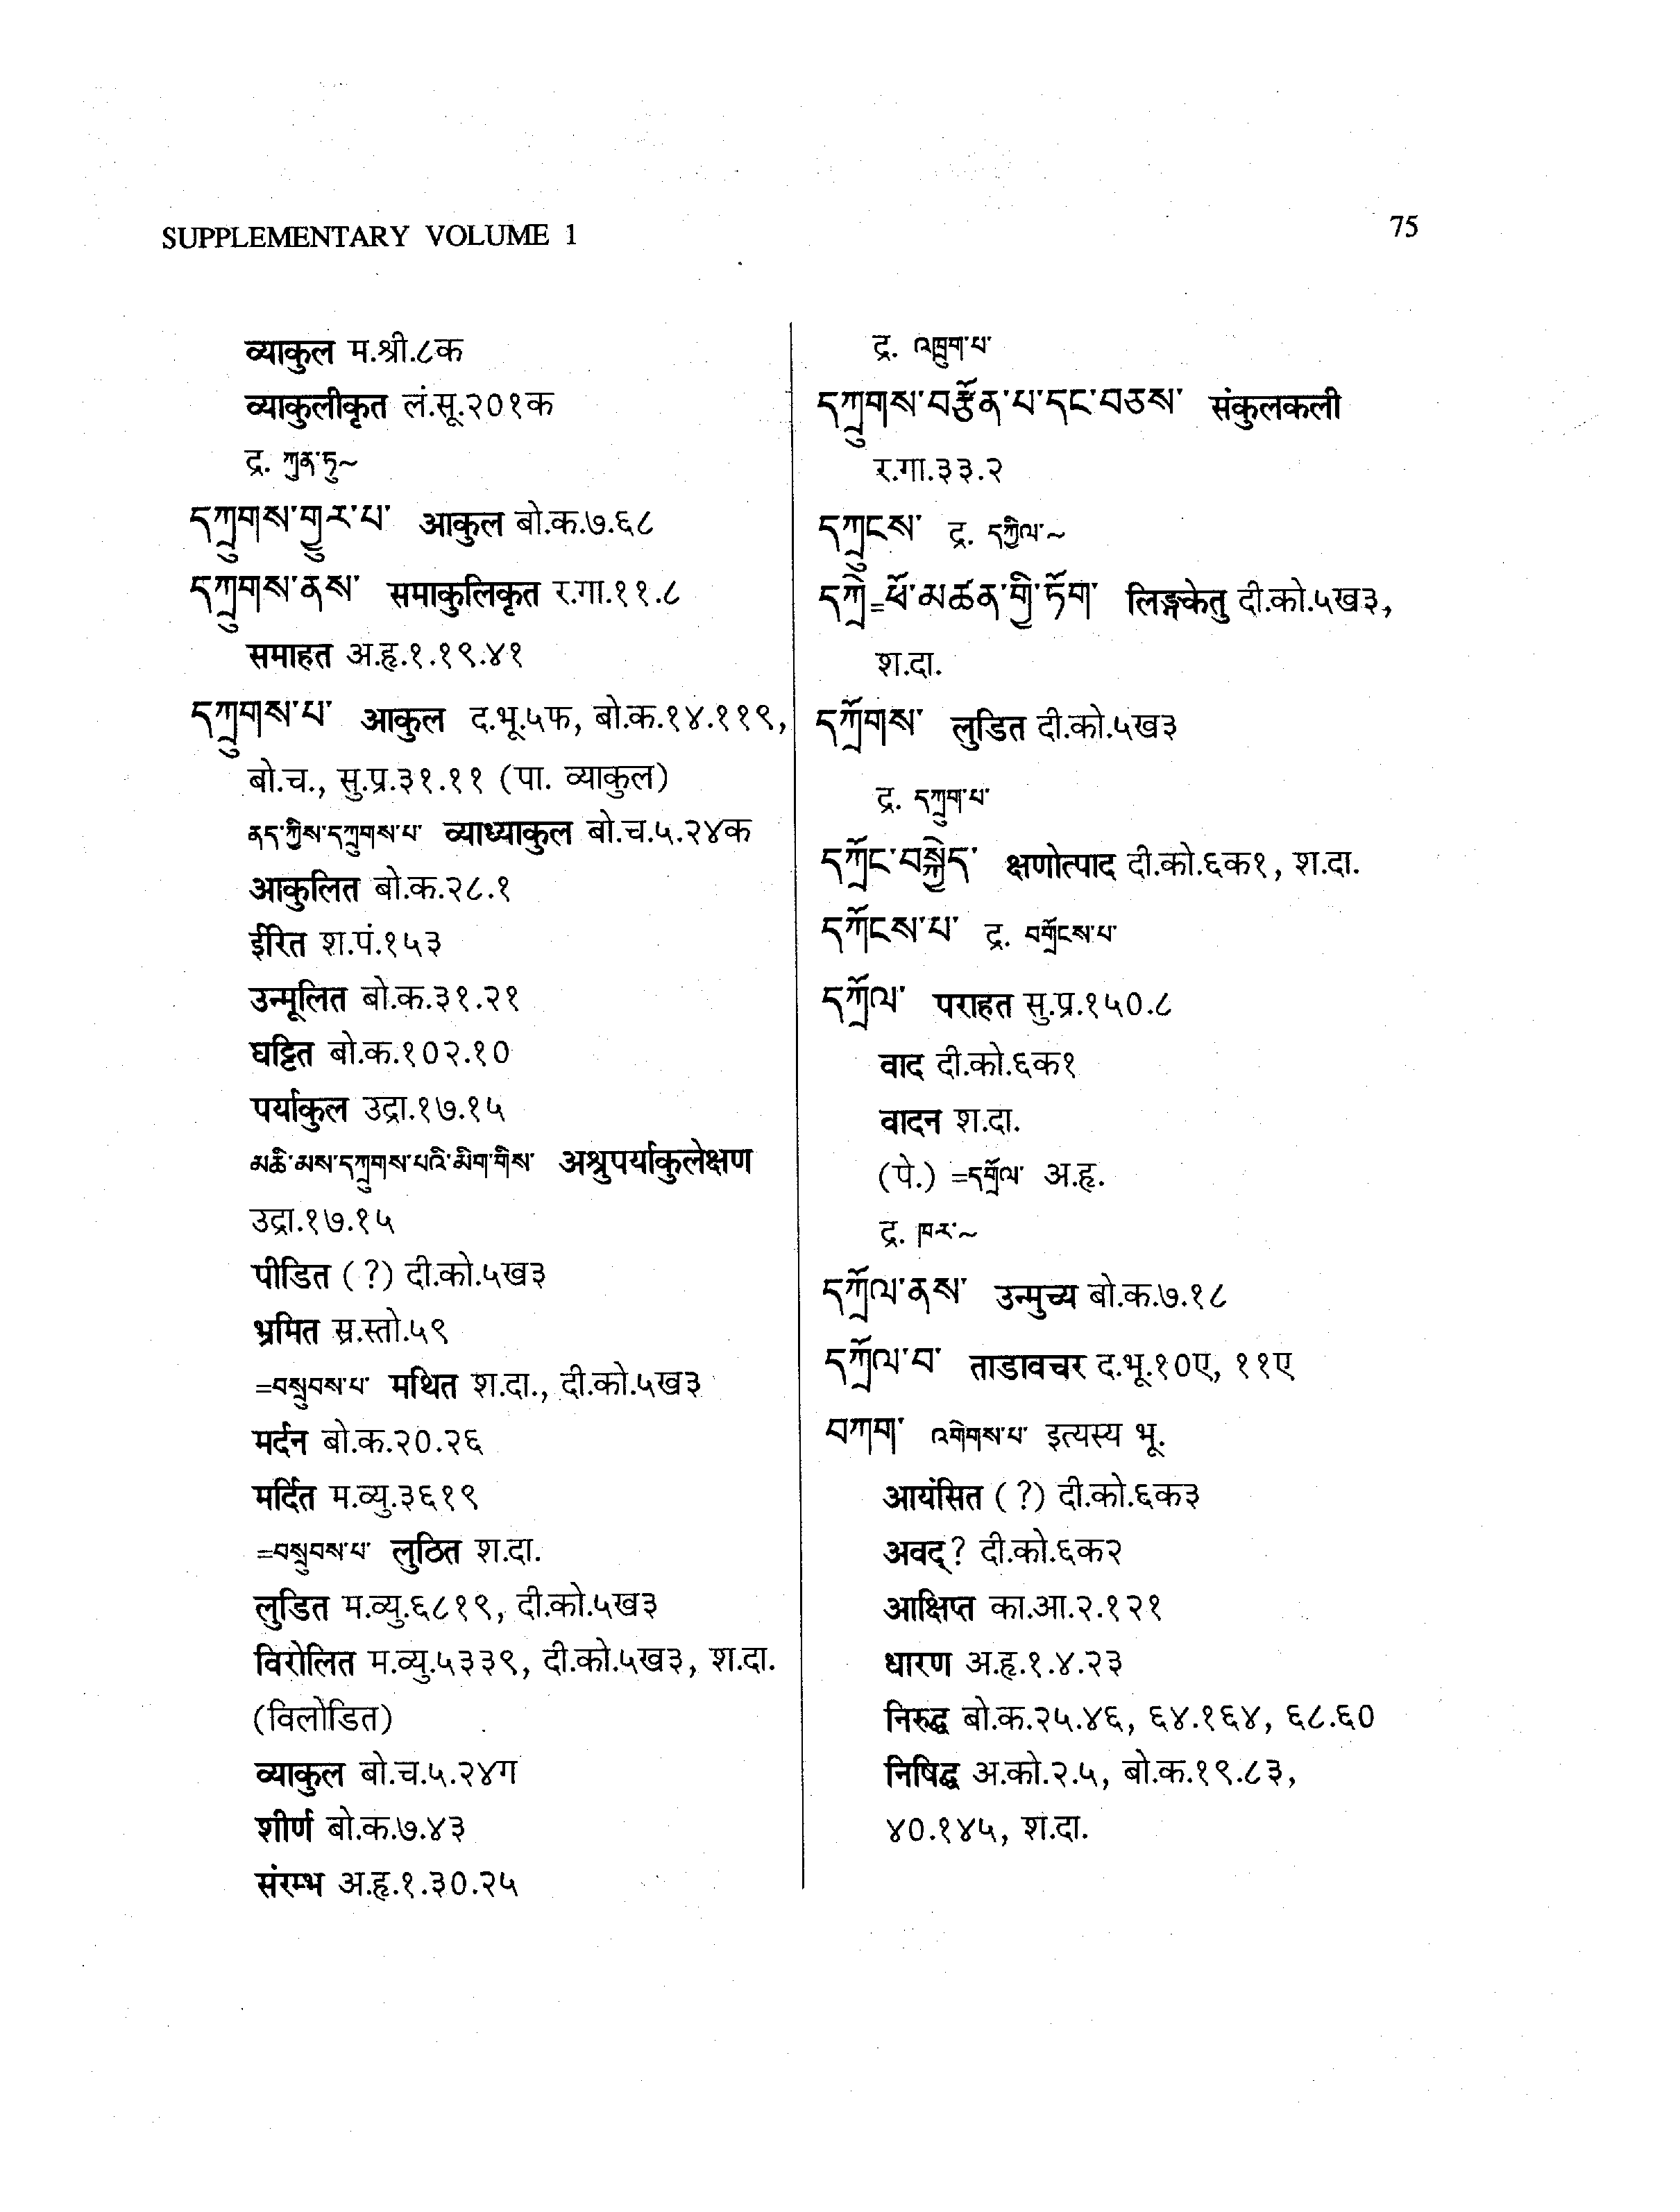 SUPPLEMENTARY VOLUME 1
75
व्याकुल म.श्री.८क
व्याकुलीकृत लं.सू.२०१क
द्र. ཀུན་ཏུ~
དཀྲུགས་གྱུར་པ་ आकुल बो.क.७.६८
དཀྲུགས་ནས་ समाकुलिकृत र.गा.११.८
समाहत अ.हृ.१.१९.४१
དཀྲུགས་པ་ आकुल द.भू.५फ, बो.क.१४.११९,
बो.च., सु.प्र.३१.११ (पा. व्याकुल)
ནད་ཀྱིས་དཀྲུགས་པ་ व्याध्याकुल बो.च.५.२४क
आकुलित बो.क.२८.१
ईरित श.पं.१५३
उन्मूलित बो.क.३१.२१
घट्टित बो.क.१०२.१०
पर्याकुल उद्रा.१७.१५
མཆི་མས་དཀྲུགས་པའི་མིག་གིས་ अश्रुपर्याकुलेक्षण
उद्रा.१७.१५
पीडित (?) दी.को.५ख३
भ्रमित स्र.स्तो.५९
=བསྲུབས་པ་ मथित श.दा., दी.को.५ख३
मर्दन बो.क.२०.२६
मर्दित म.व्यु.३६१९
=བསྲུབས་པ་ लुठित श.दा.
लुडित म.व्यु.६८१९, दी.को.५ख३
विरोलित म.व्यु.५३३९, दी.को.५ख३, श.दा.
(विलोडित)
व्याकुल बो.च.५.२४ग
शीर्ण बो.क.७.४३
संरम्भ अ.हृ.१.३०.२५
द्र. འཁྲུག་པ་
དཀྲུགས་བརྩོན་པ་དང་བཅས་ संकुलकली
र.गा.३३.२
དཀྲུངས་ द्र. དཀྱིལ་~
དཀྲེ=ཕོ་མཚན་གྱི་ཏོག་ लिङ्गकेतु दी.को.५ख३,
श.दा.
དཀྲོགས་ लुडित दी.को.५ख३
द्र. དཀྲུག་པ་
དཀྲོང་བསྐྱེད་ क्षणोत्पाद दी.को.६क१, श.दा.
དཀྲོངས་པ་ द्र. བཀྲོངས་པ་
དཀྲོལ་ पराहत सु.प्र.१५०.८
वाद दी.को.६क१
वादन श.दा.
(पे.) =དགྲོལ་ अ.हृ.
द्र. ཁར་~
དཀྲོལ་ནས་ उन्मुच्य बो.क.७.१८
དཀྲོལ་བ་ ताडावचर द.भू.१०ए, ११ए
བཀག་ འགེགས་པ་ इत्यस्य भू.
आयंसित (?) दी.को.६क३
अवद्? दी.को.६क२
आक्षिप्त का.आ.२.१२१
धारण अ.हृ.१.४.२३
निरुद्ध बो.क.२५.४६, ६४.१६४, ६८.६०
निषिद्ध अ.को.२.५, बो.क.१९.८३,
४०.१४५, श.दा.